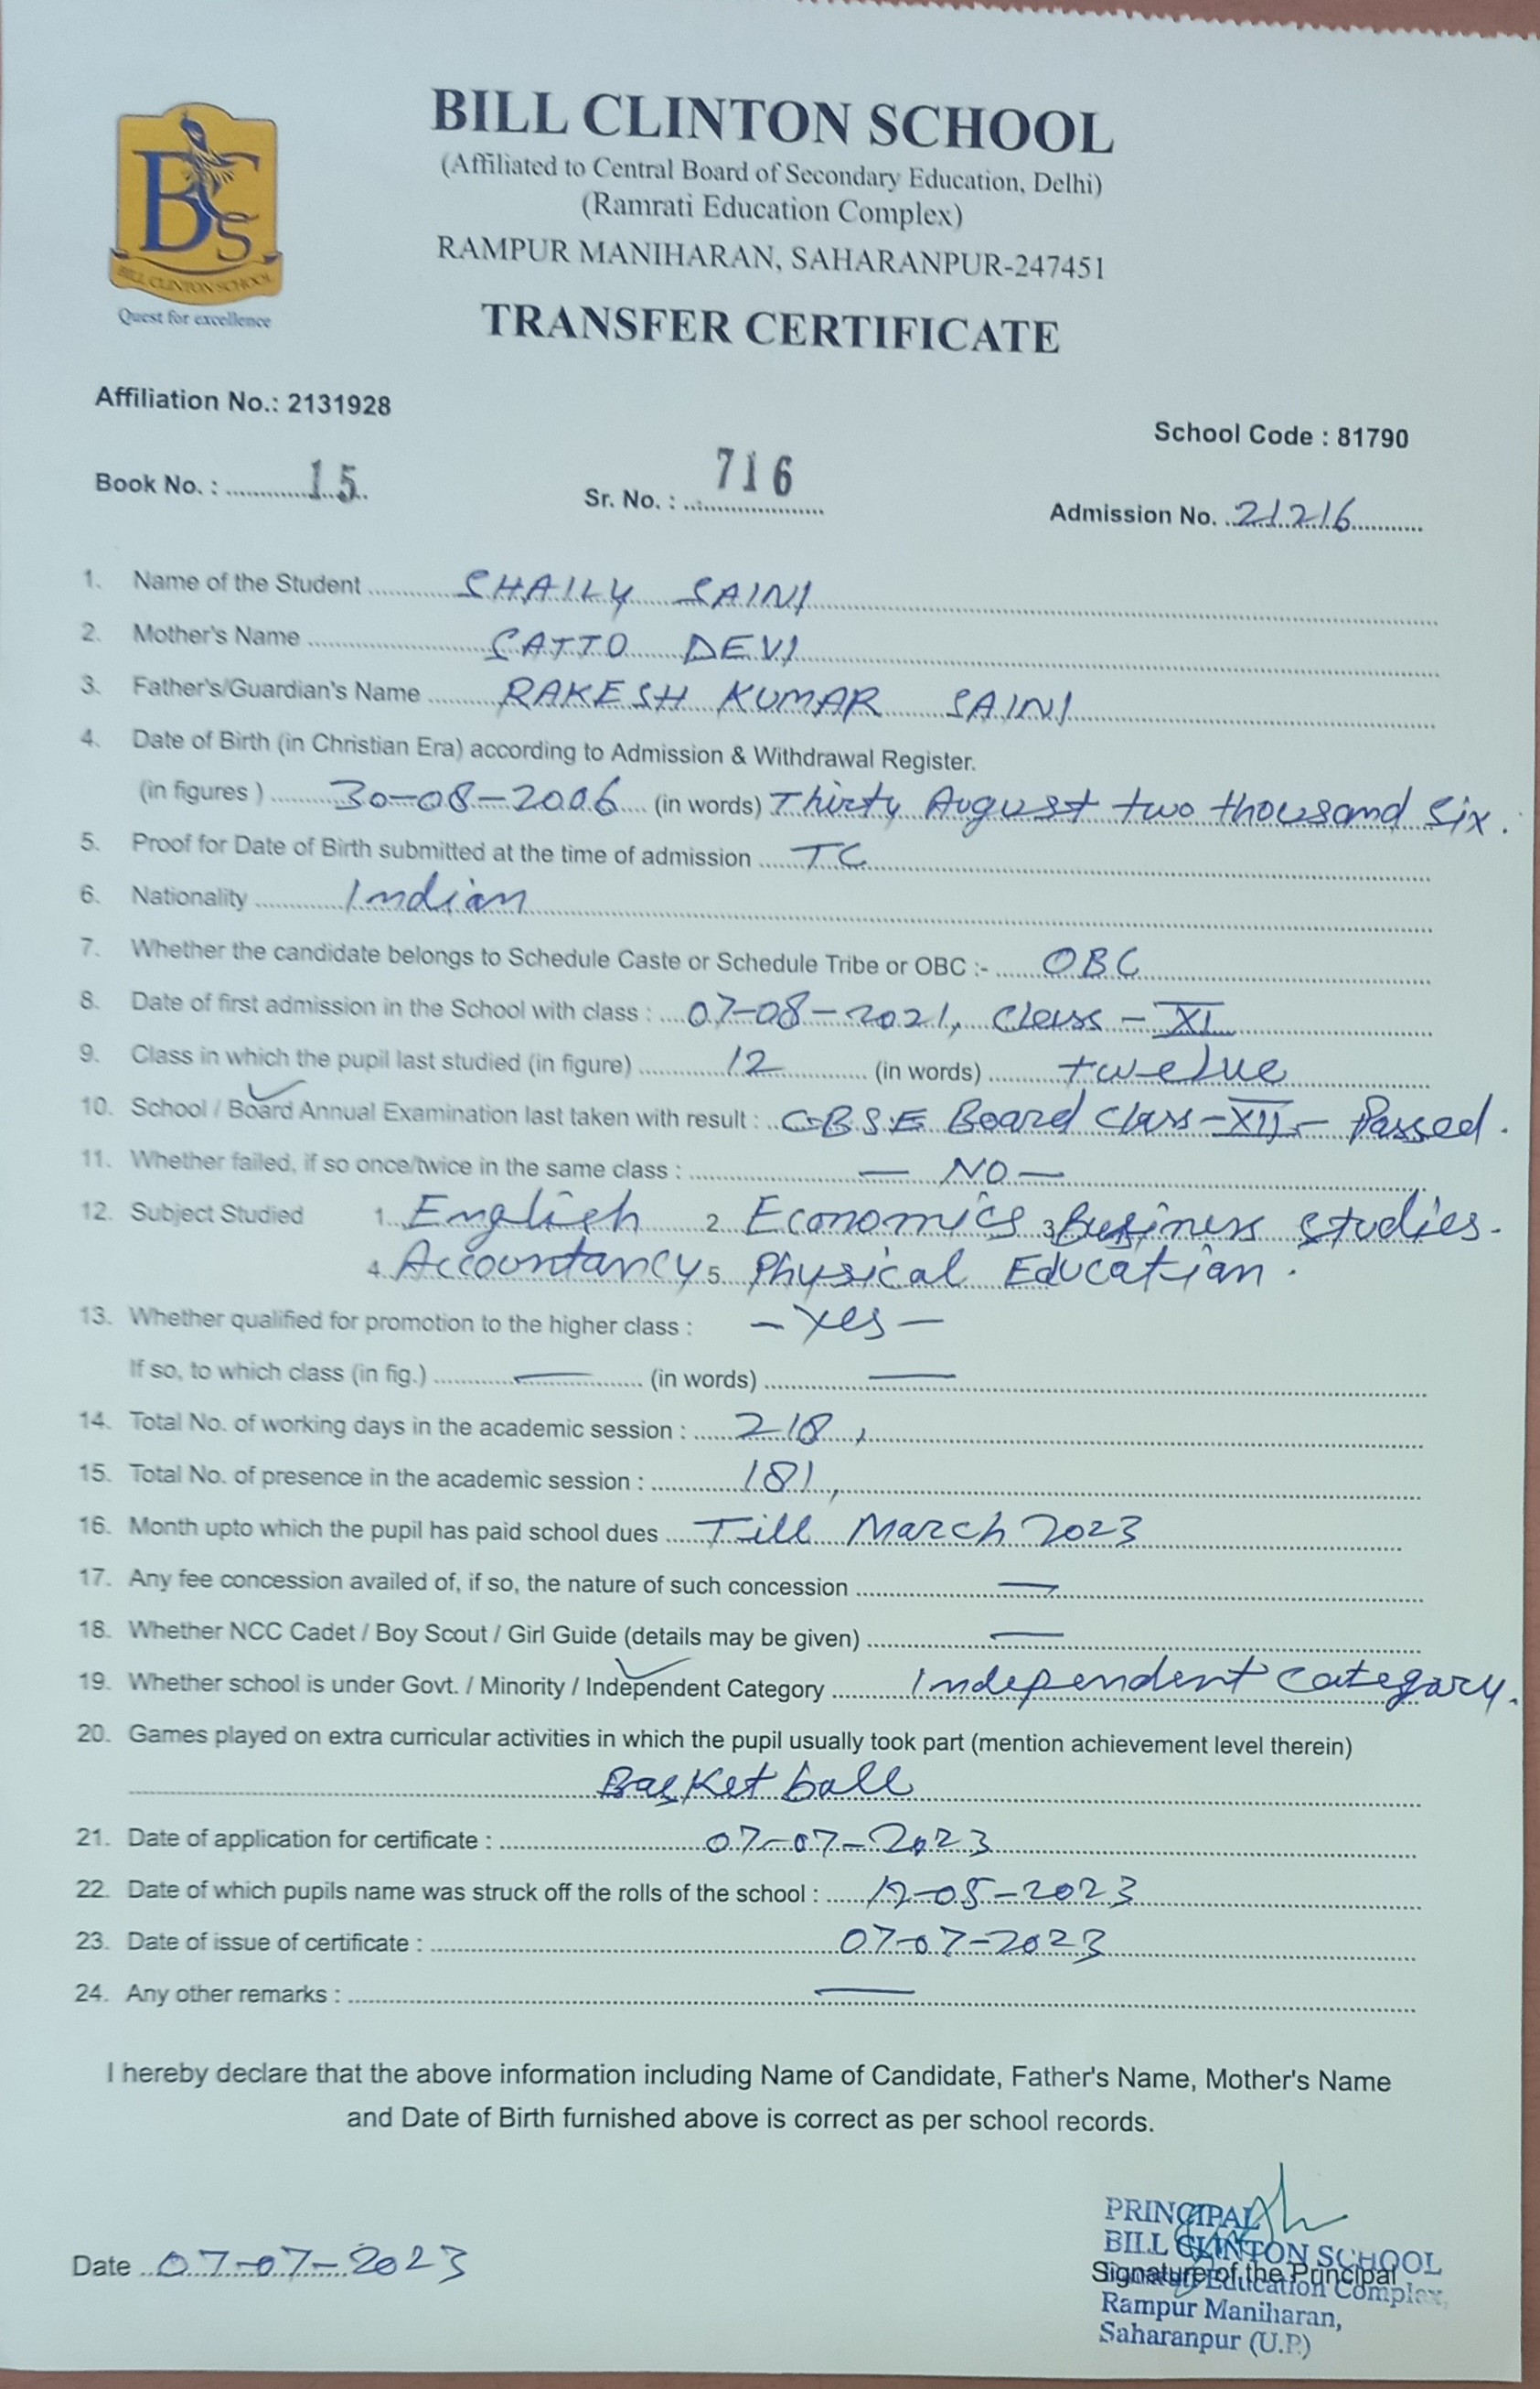 BILL CLINTON SCHOOL
(Affiliated to Central Board of Secondary Education, Delhi)
(Ramrati Education Complex)
RAMPUR MANIHARAN, SAHARANPUR-247451
BCS
BILL CLINTON SCHOOL
Quest for excellence
TRANSFER CERTIFICATE
Affiliation No.: 2131928
School Code : 81790
Book No. : 15 Sr. No. : 716 Admission No. 21216
1. Name of the Student SHAILY SAINI
2. Mother's Name SATTO DEVI
3. Father's/Guardian's Name RAKESH KUMAR SAINI
4. Date of Birth (in Christian Era) according to Admission & Withdrawal Register.
(in figures ) 30-08-2006 (in words) Thirty August two thousand six.
5. Proof for Date of Birth submitted at the time of admission TC
6. Nationality Indian
7. Whether the candidate belongs to Schedule Caste or Schedule Tribe or OBC :- OBC
8. Date of first admission in the School with class : 07-08-2021, Class - XI
9. Class in which the pupil last studied (in figure) 12 (in words) twelve
10. School / Board Annual Examination last taken with result : C.B.S.E Board Class-XII- Passed.
11. Whether failed, if so once/twice in the same class : — NO —
12. Subject Studied 1. English 2. Economics 3. Business studies.
4. Accountancy 5. Physical Education.
13. Whether qualified for promotion to the higher class : — Yes —
If so, to which class (in fig.) — (in words) —
14. Total No. of working days in the academic session : 218,
15. Total No. of presence in the academic session : 181,
16. Month upto which the pupil has paid school dues Till March 2023
17. Any fee concession availed of, if so, the nature of such concession —
18. Whether NCC Cadet / Boy Scout / Girl Guide (details may be given) —
19. Whether school is under Govt. / Minority / Independent Category Independent Category.
20. Games played on extra curricular activities in which the pupil usually took part (mention achievement level therein)
Basket ball
21. Date of application for certificate : 07-07-2023
22. Date of which pupils name was struck off the rolls of the school : 12-05-2023
23. Date of issue of certificate : 07-07-2023
24. Any other remarks : —
I hereby declare that the above information including Name of Candidate, Father's Name, Mother's Name
and Date of Birth furnished above is correct as per school records.
Date 07-07-2023
PRINCIPAL
BILL CLINTON SCHOOL
Signature of the Principal
Education Complex,
Rampur Maniharan,
Saharanpur (U.P.)